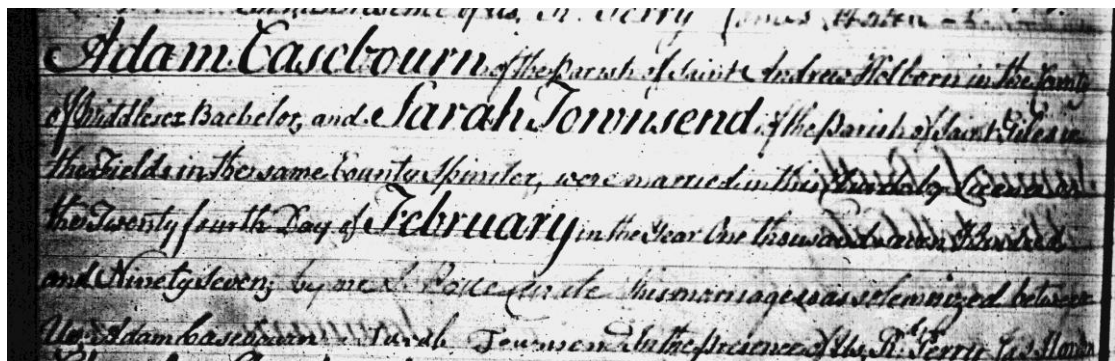 of us,
Adam Casebourn of the Parish of Saint Andrew Holborn in the County
of Middlesex Bachelor, and Sarah Townsend of the Parish of Saint Giles in
the Fields in the same County Spinster, were married in this Church by Licence
the Twenty fourth Day of February in the Year One thousand seven Hundred
and Ninety Seven; by me This marriage was solemnized between
Us, Adam Casebourn Sarah Townsend In the presence of Us,